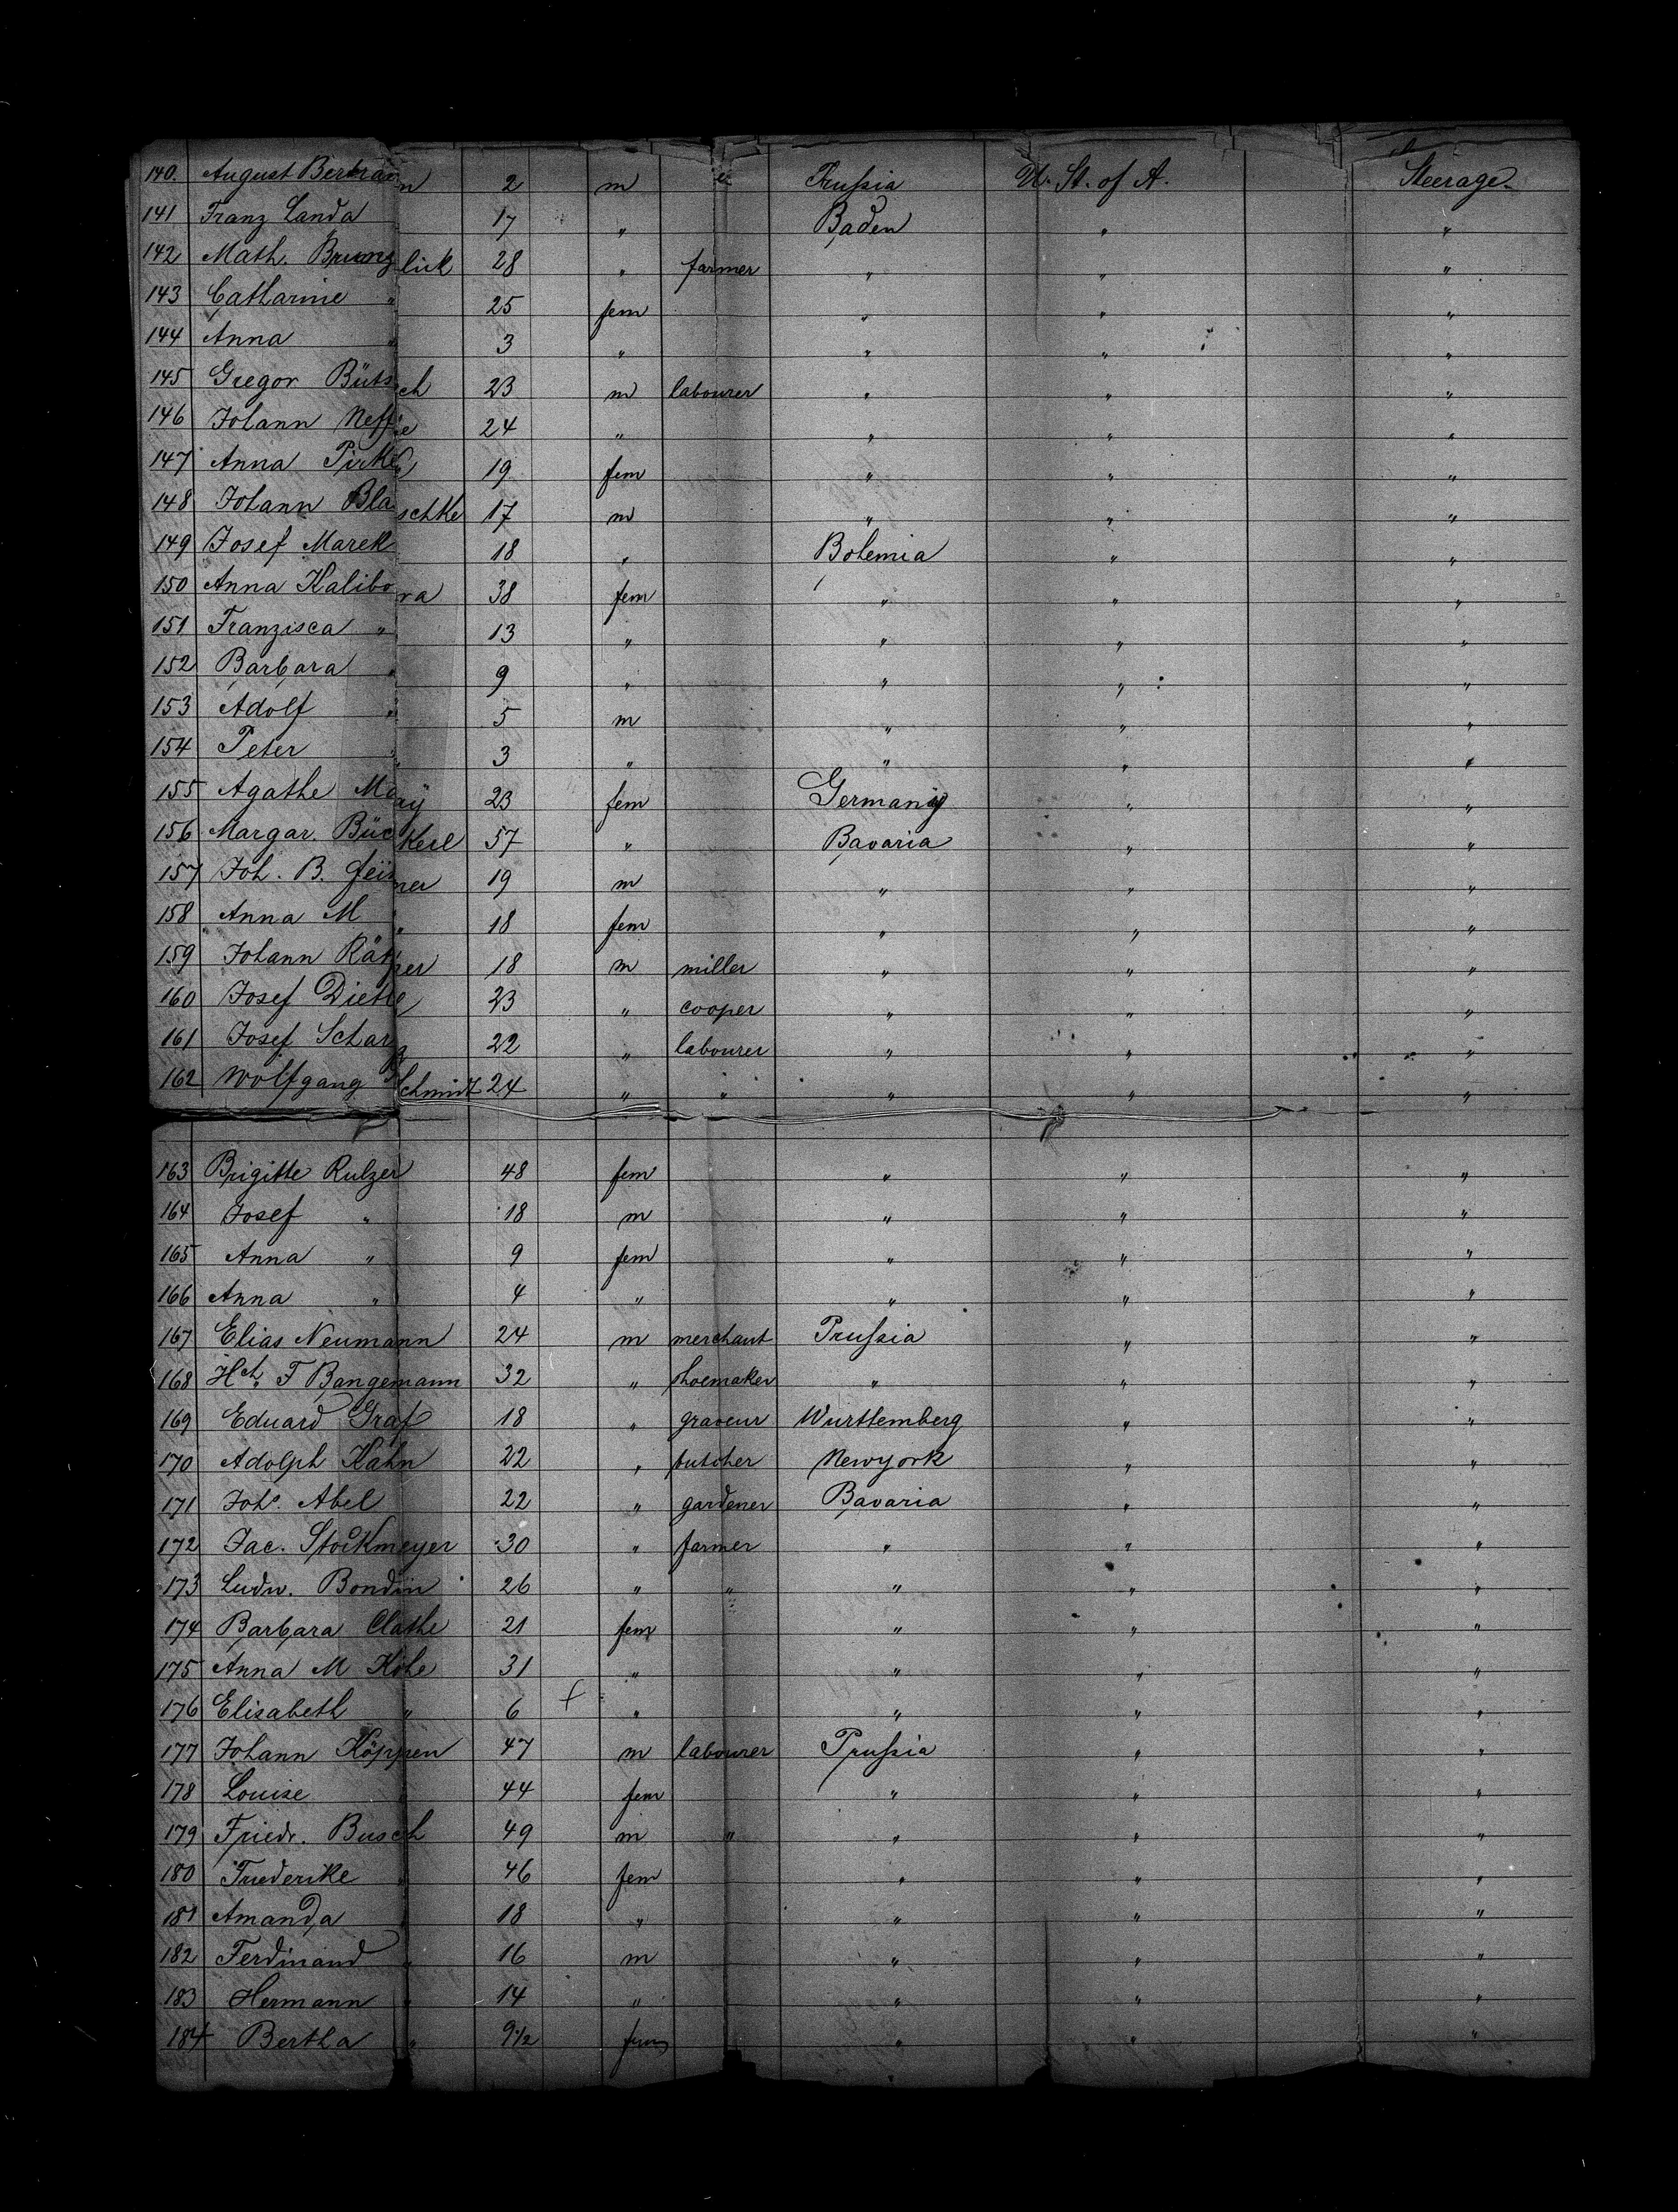 140. August Bertram 2 m " Prussia U. St. of A. Steerage
141 Franz Landa 17 " Baden " "
142 Math. Brunglick 28 " farmer " " "
143 Catharine " 25 fem " " "
144 Anna " 3 " " " "
145 Gregor Bütsch 23 m labourer " " "
146 Johann Neffe 24 " " " "
147 Anna Pirkel 19 fem " " "
148 Johann Blaschke 17 m " " "
149 Josef Marek 18 " Bohemia " "
150 Anna Kalibora 38 fem " " "
151 Franzisca " 13 " " " "
152 Barbara " 9 " " " "
153 Adolf " 5 m " " "
154 Peter " 3 " " " "
155 Agathe May 23 fem Germany " "
156 Margar. Bückerl 57 " Bavaria " "
157 Joh. B. 19 m " " "
158 Anna M " 18 fem " " "
159 Johann 18 m miller " " "
160 Josef Dietl 23 " cooper " " "
161 Josef Scharz 22 " labourer " " "
162 Wolfgang Schmidt 24 " " " " "
163 Brigitte Rulzer 48 fem " " "
164 Josef " 18 m " " "
165 Anna " 9 fem " " "
166 Anna " 4 " " " "
167 Elias Neumann 24 m merchant Prussia " "
168 Hch. F Bangemann 32 " shoemaker " " "
169 Eduard Graf 18 " graveur Wurttemberg " "
170 Adolph Kahn 22 " butcher Newyork " "
171 Johs. Abel 22 " gardener Bavaria " "
172 Jac. Stockmeyer 30 " farmer " " "
173 Ludw. Bondin 26 " " " " "
174 Barbara Clathe 21 fem " " "
175 Anna M Höhe 31 " " " "
176 Elisabeth " 6 f " " " "
177 Johann Köppen 47 m labourer Prussia " "
178 Louise " 44 fem " " "
179 Friedr. Busch 49 m " " " "
180 Friederike " 46 fem " " "
181 Amanda " 18 " " " "
182 Ferdinand " 16 m " " "
183 Hermann " 14 " " " "
184 Bertha " 9 1/2 fem " " "